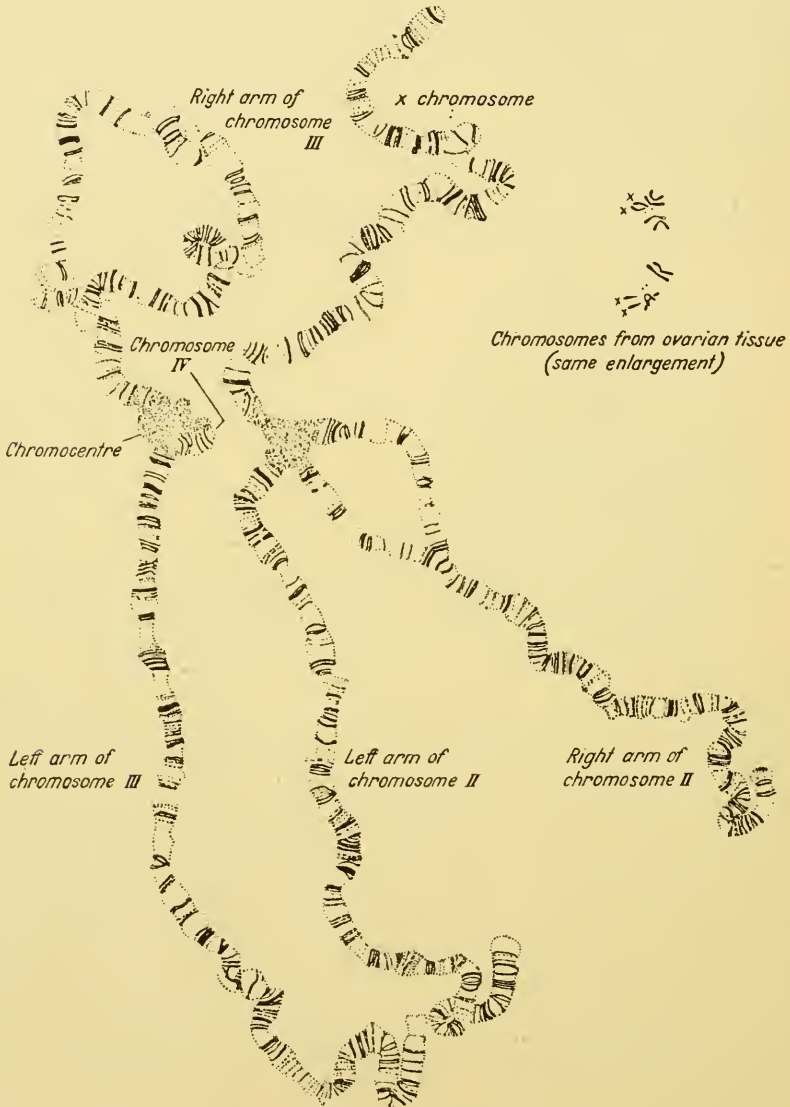 Right arm of
chromosome
III
x chromosome
x
x
Chromosomes from ovarian tissue
(same enlargement)
x
x
Chromosome
IV
Chromocentre
Left arm of
chromosome III
Left arm of
chromosome II
Right arm of
chromosome II